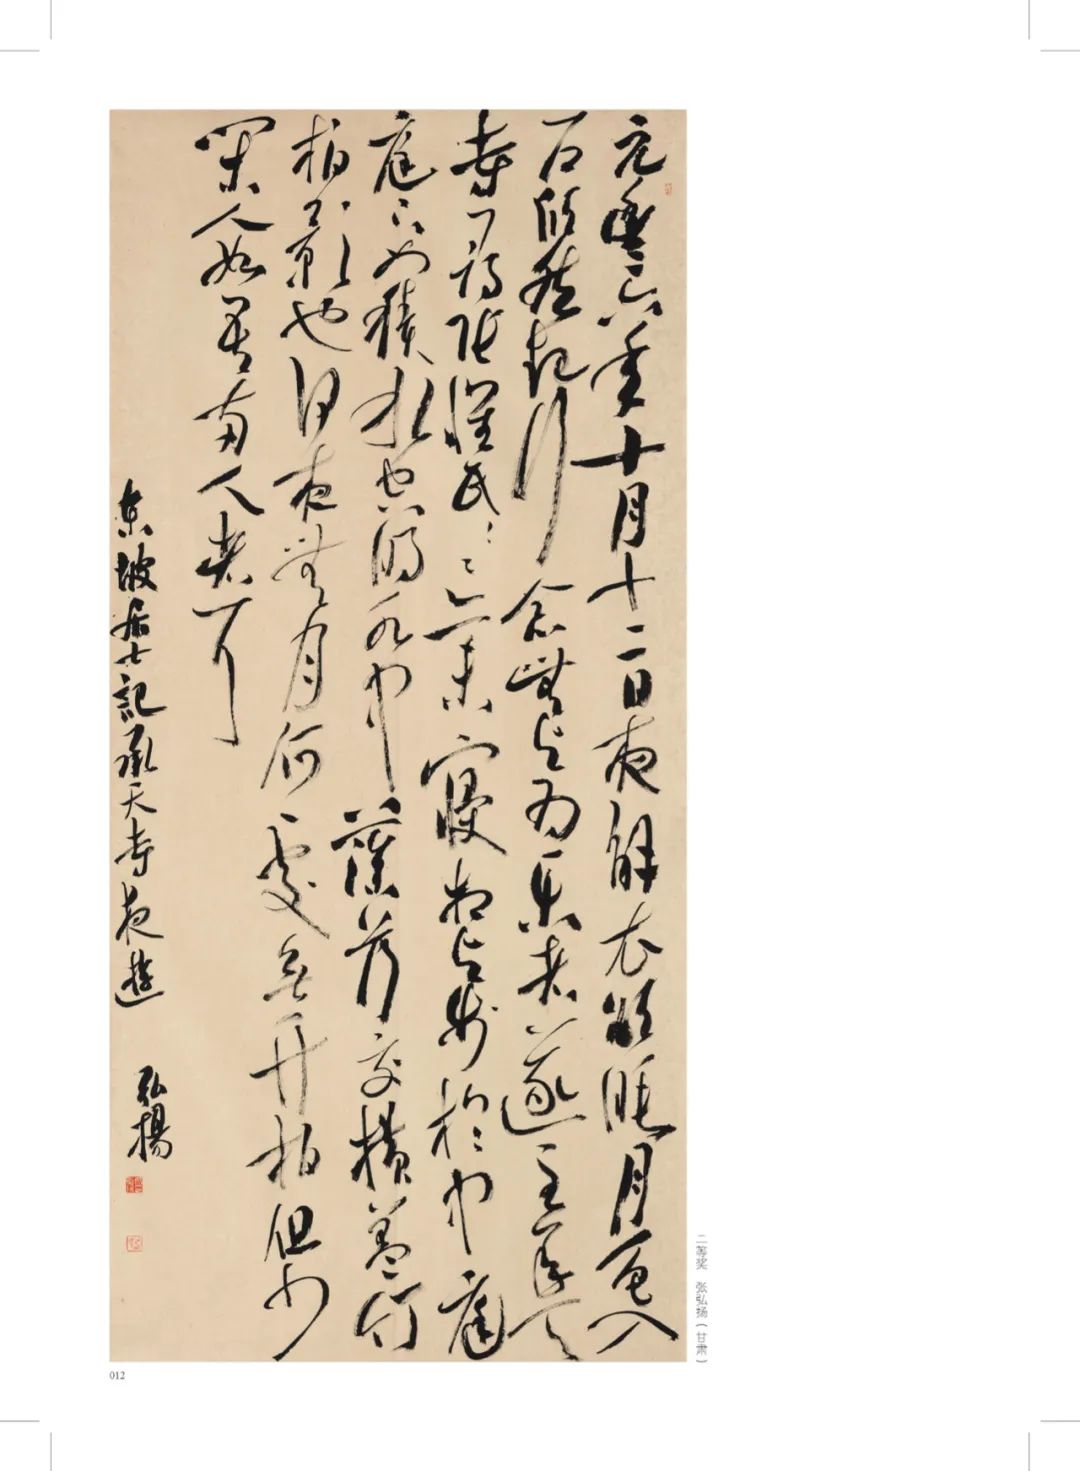 元豐六年十月十二日夜解衣欲睡月色入
户欣然起行念無与为樂者遂至承天
寺尋張懷民〻〻亦未寢相与步於中庭
庭下如積水空明水中藻荇交橫蓋竹
柏影也何夜無月何處無竹柏但少
閑人如吾兩人者耳
東坡居士記承天寺夜遊
弘揚
二等奖 张弘扬（甘肃）
012